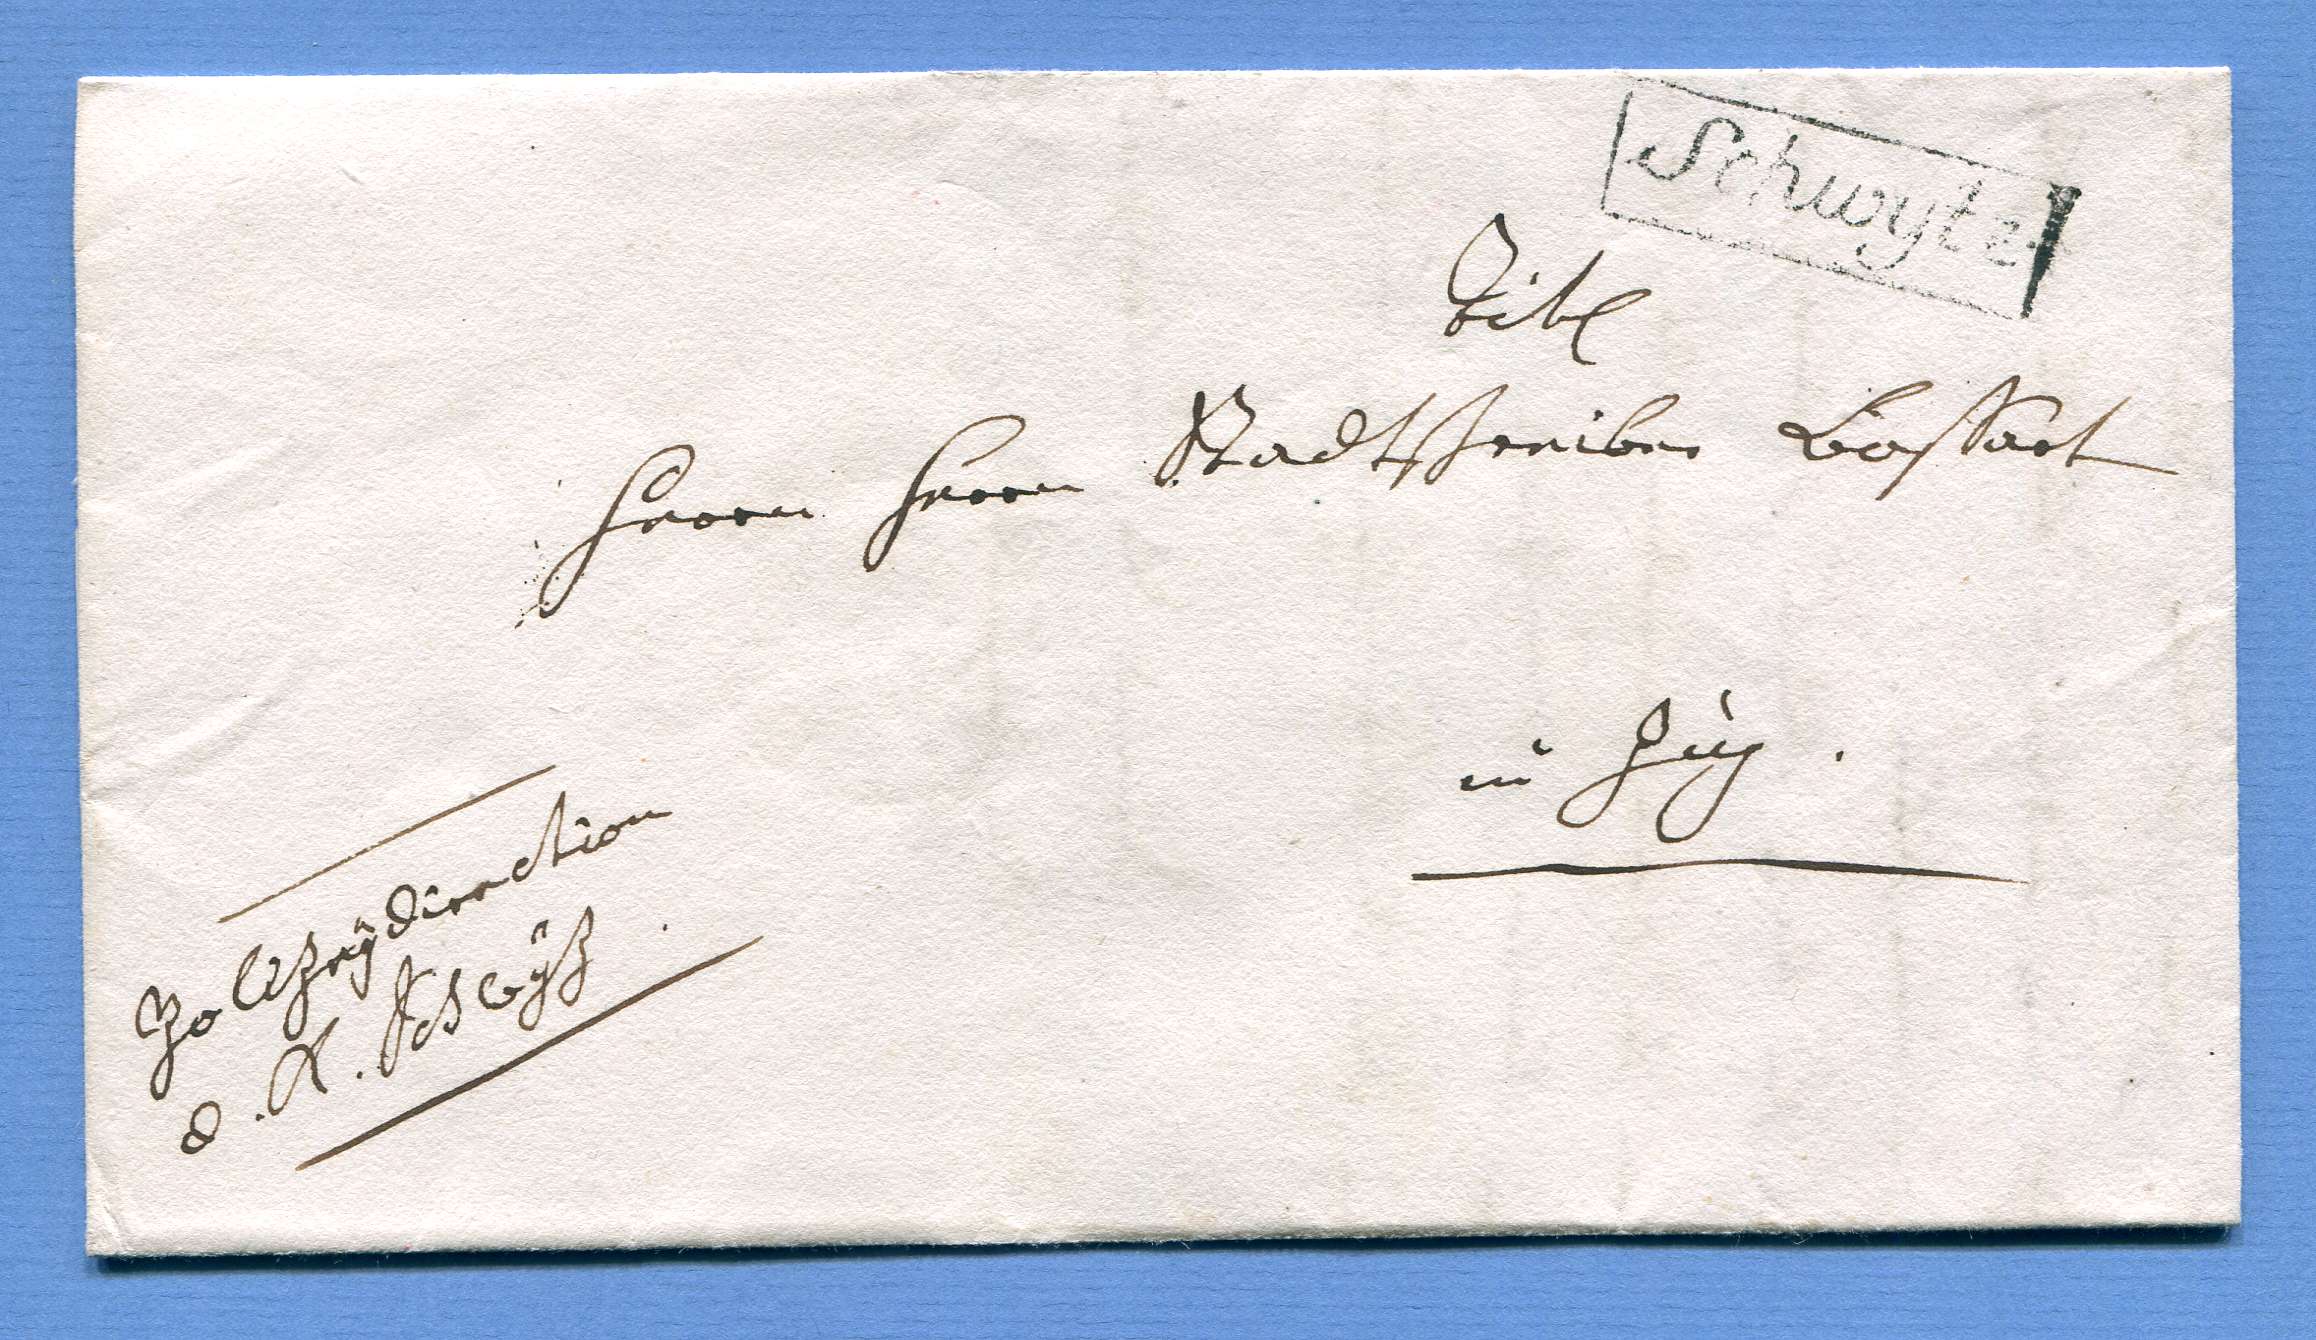 Schwytz
Titl
Herrn Herrn Stadtschreiber Bossart
in Zug.
Polizeÿdirection
d. K. Schwÿz.